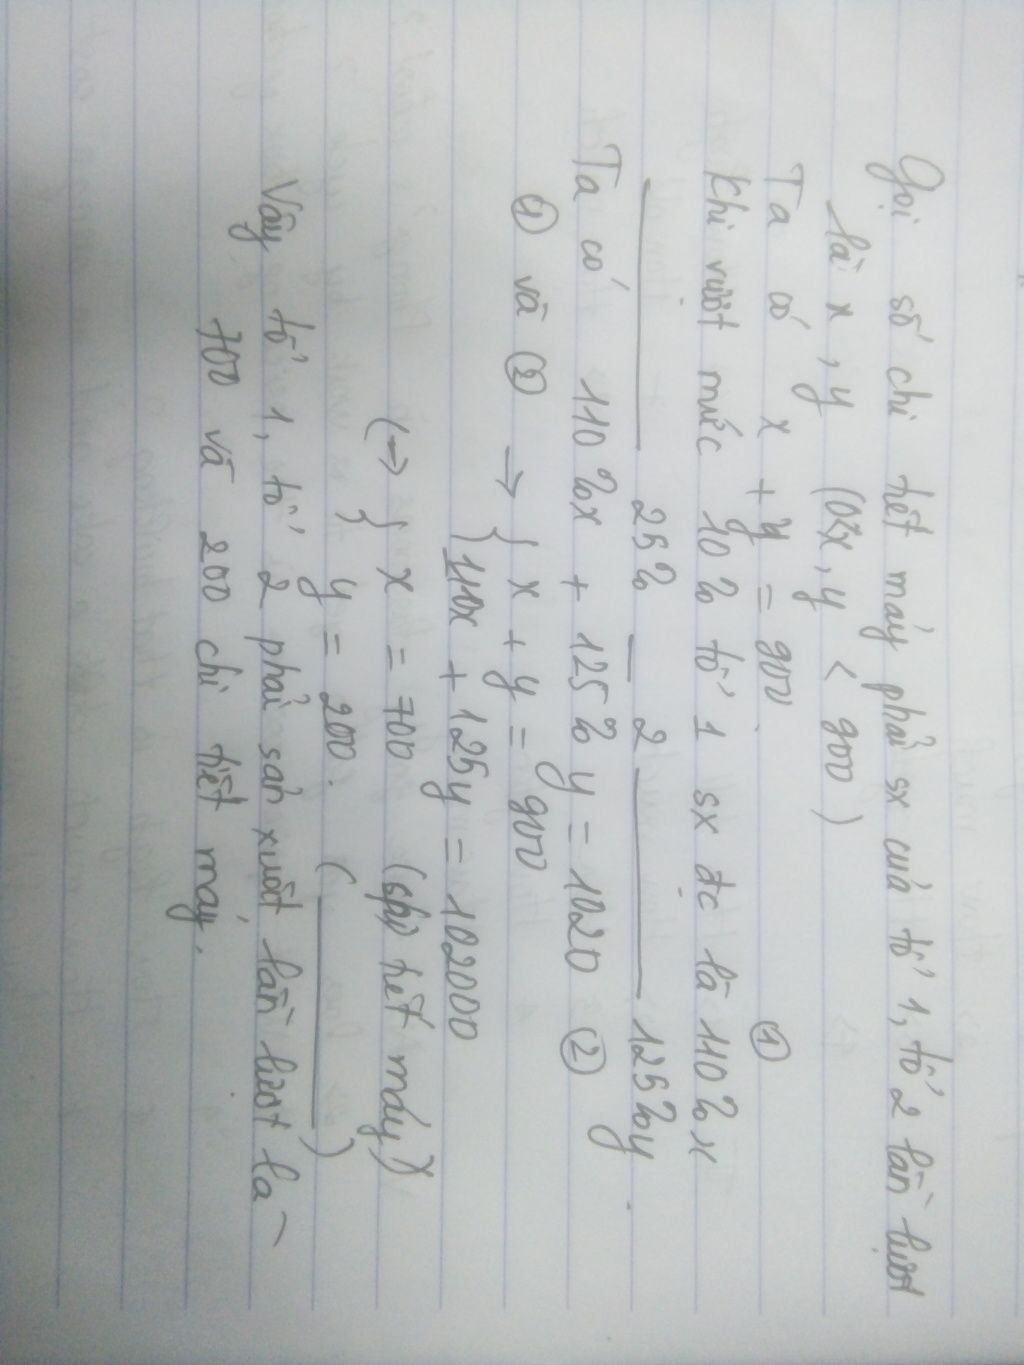 Gọi số chi tiết máy phải sx của tổ 1, tổ 2 lần lượt
là x, y (0<x, y < 900)
Ta có x + y = 900. ①
Khi vượt mức 10% tổ 1 sx đc là 110% x
——— 25% — 2 ——— 125% y
Ta có 110%x + 125% y = 1020 ②
① và ② → { x + y = 900
{ 110x + 125y = 102000
(→) { x = 700 (chi tiết máy)
{ y = 200. ( ——— )
Vậy tổ 1, tổ 2 phải sản xuất lần lượt là
700 và 200 chi tiết máy.